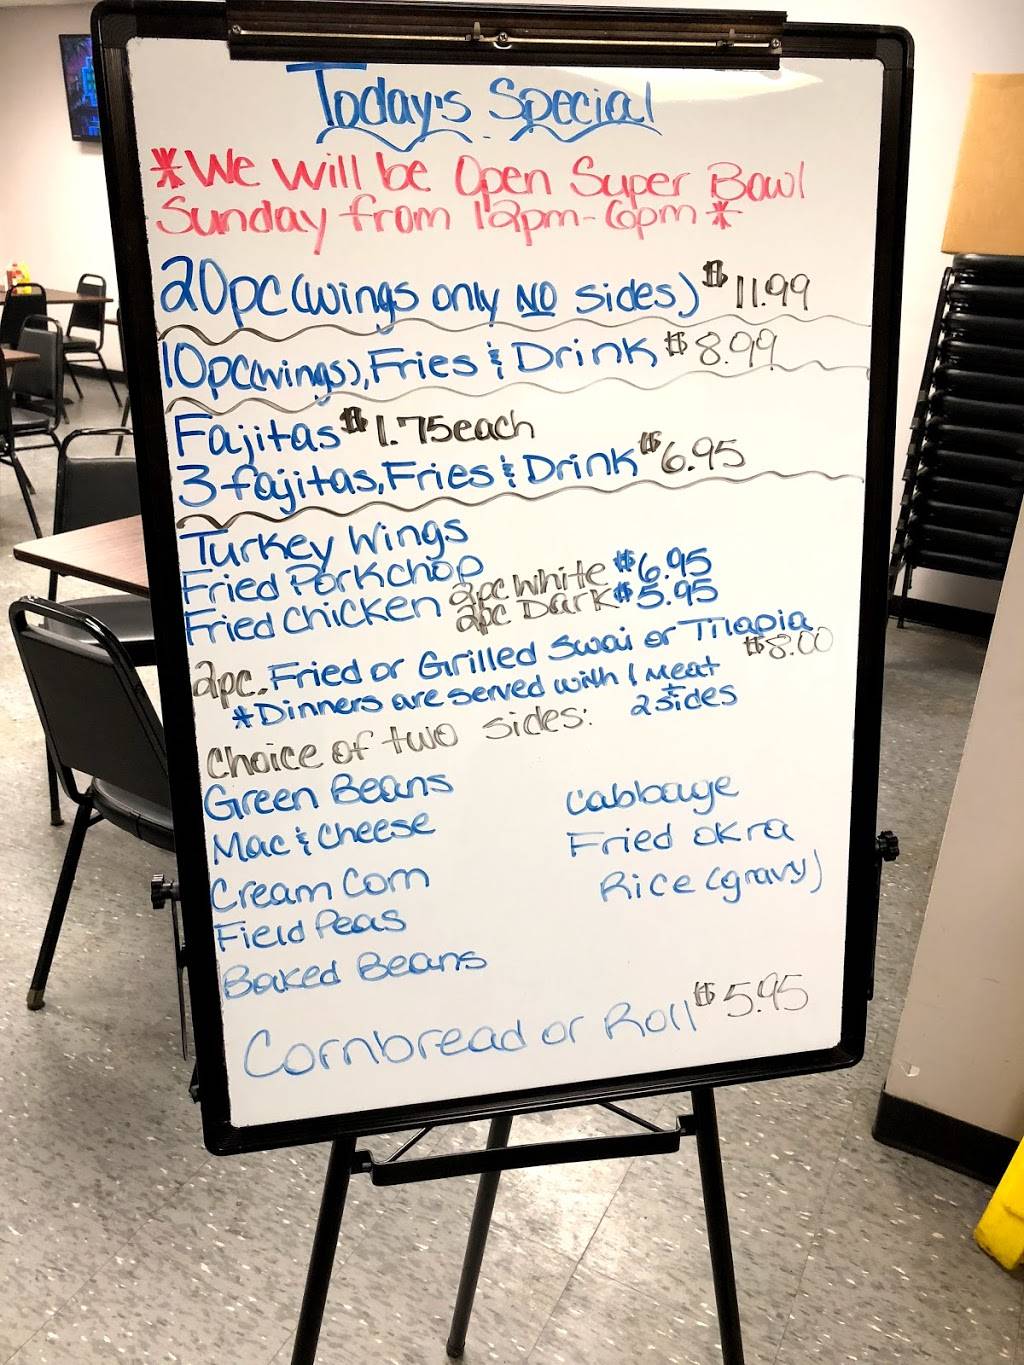 Today's Special
*We will be Open Super Bowl
Sunday from 12pm-6pm *
20pc (wings only NO sides) $11.99
10pc(wings), Fries & Drink $8.99
Fajitas $1.75each
3 fajitas, Fries & Drink $6.95
Turkey Wings
Fried Porkchop
Fried Chicken 2pc White $6.95
2pc Dark $5.95
2pc. Fried or Grilled Swai or Tilapia
$8.00
*Dinners are served with 1 Meat
& 2 sides
Choice of two sides:
Green Beans
Mac & Cheese
Cream Corn
Field Peas
Baked Beans
Cabbage
Fried Okra
Rice (gravy)
Cornbread or Roll $5.95